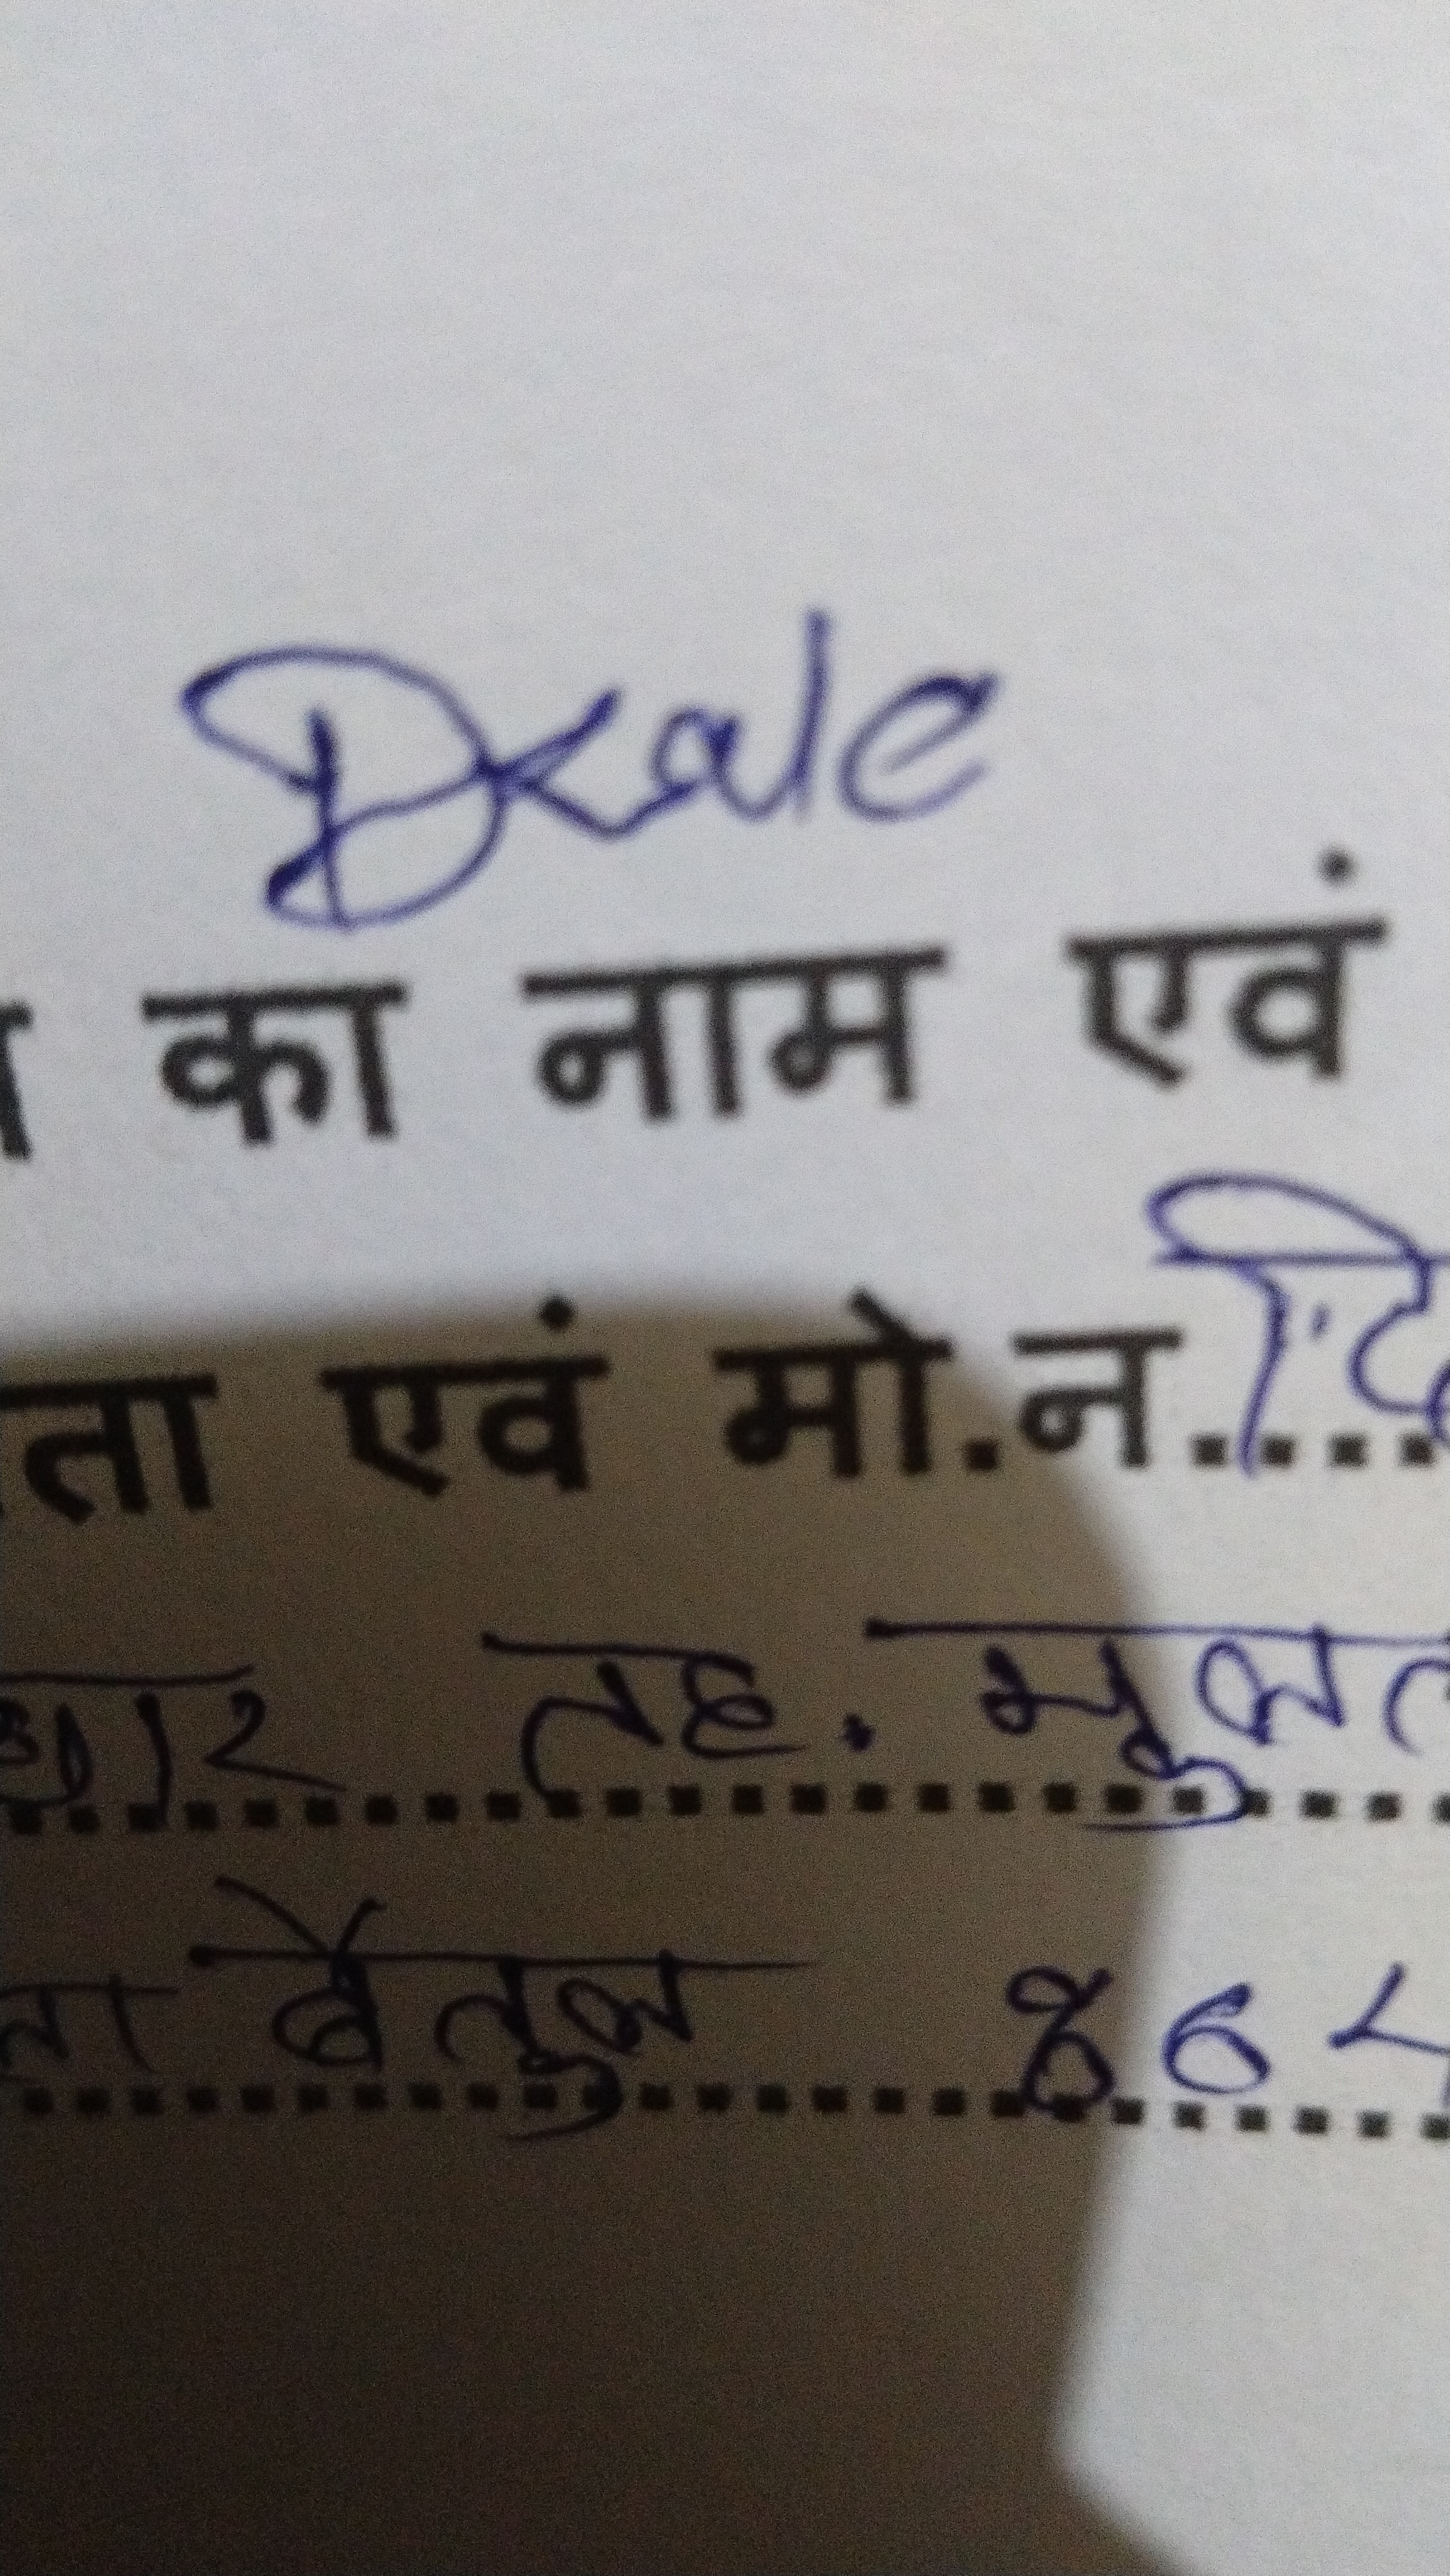 Dkale
का नाम एवं
ता एवं मो.न....
तह. मुलत
बेतुल 864